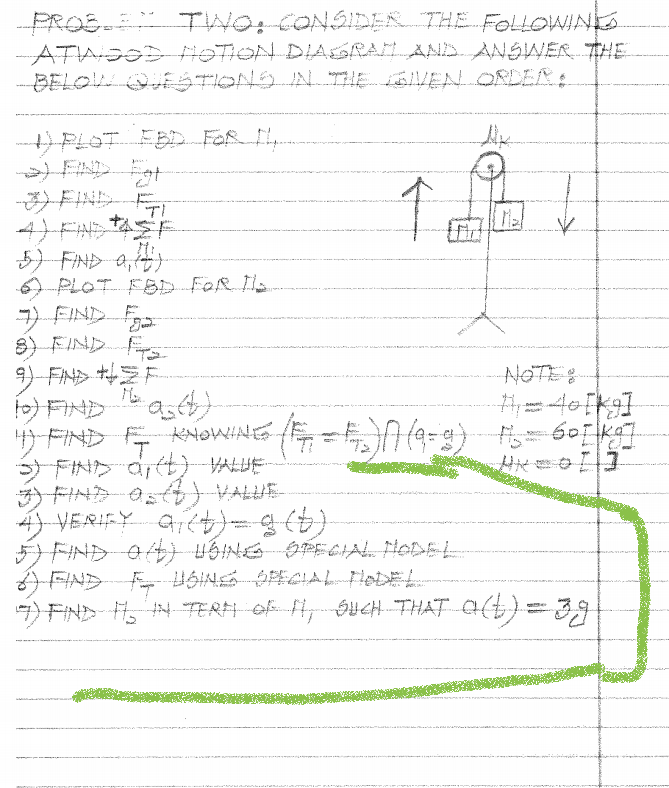 TWO: CONSIDER THE FOLLOWING
ATWOOD MOTION DIAGRAM AND ANSWER THE
BELOW QUESTIONS IN THE GIVEN ORDER:
1) PLOT FBD FOR M₁
2) FIND Fg1
3) FIND FT1
4) FIND +↑ΣF M1
5) FIND a₁(t)
6) PLOT FBD FOR M₂
7) FIND Fg2
8) FIND FT2
9) FIND +↓ΣF M2
10) FIND a₂(t)
11) FIND FT KNOWING (FT1 = FT2) ∩ (a₁=a₂)
2) FIND a₁(t) VALUE
3) FIND a₂(t) VALUE
4) VERIFY a₁(t) = a₂(t)
5) FIND a(t) USING SPECIAL MODEL
6) FIND FT USING SPECIAL MODEL
7) FIND M₂ IN TERM OF M₁ SUCH THAT a(t) = 3g
μk
M₁
M₂
NOTE:
M₁ = 40 [kg]
M₂ = 60 [kg]
μk = 0 [ ]